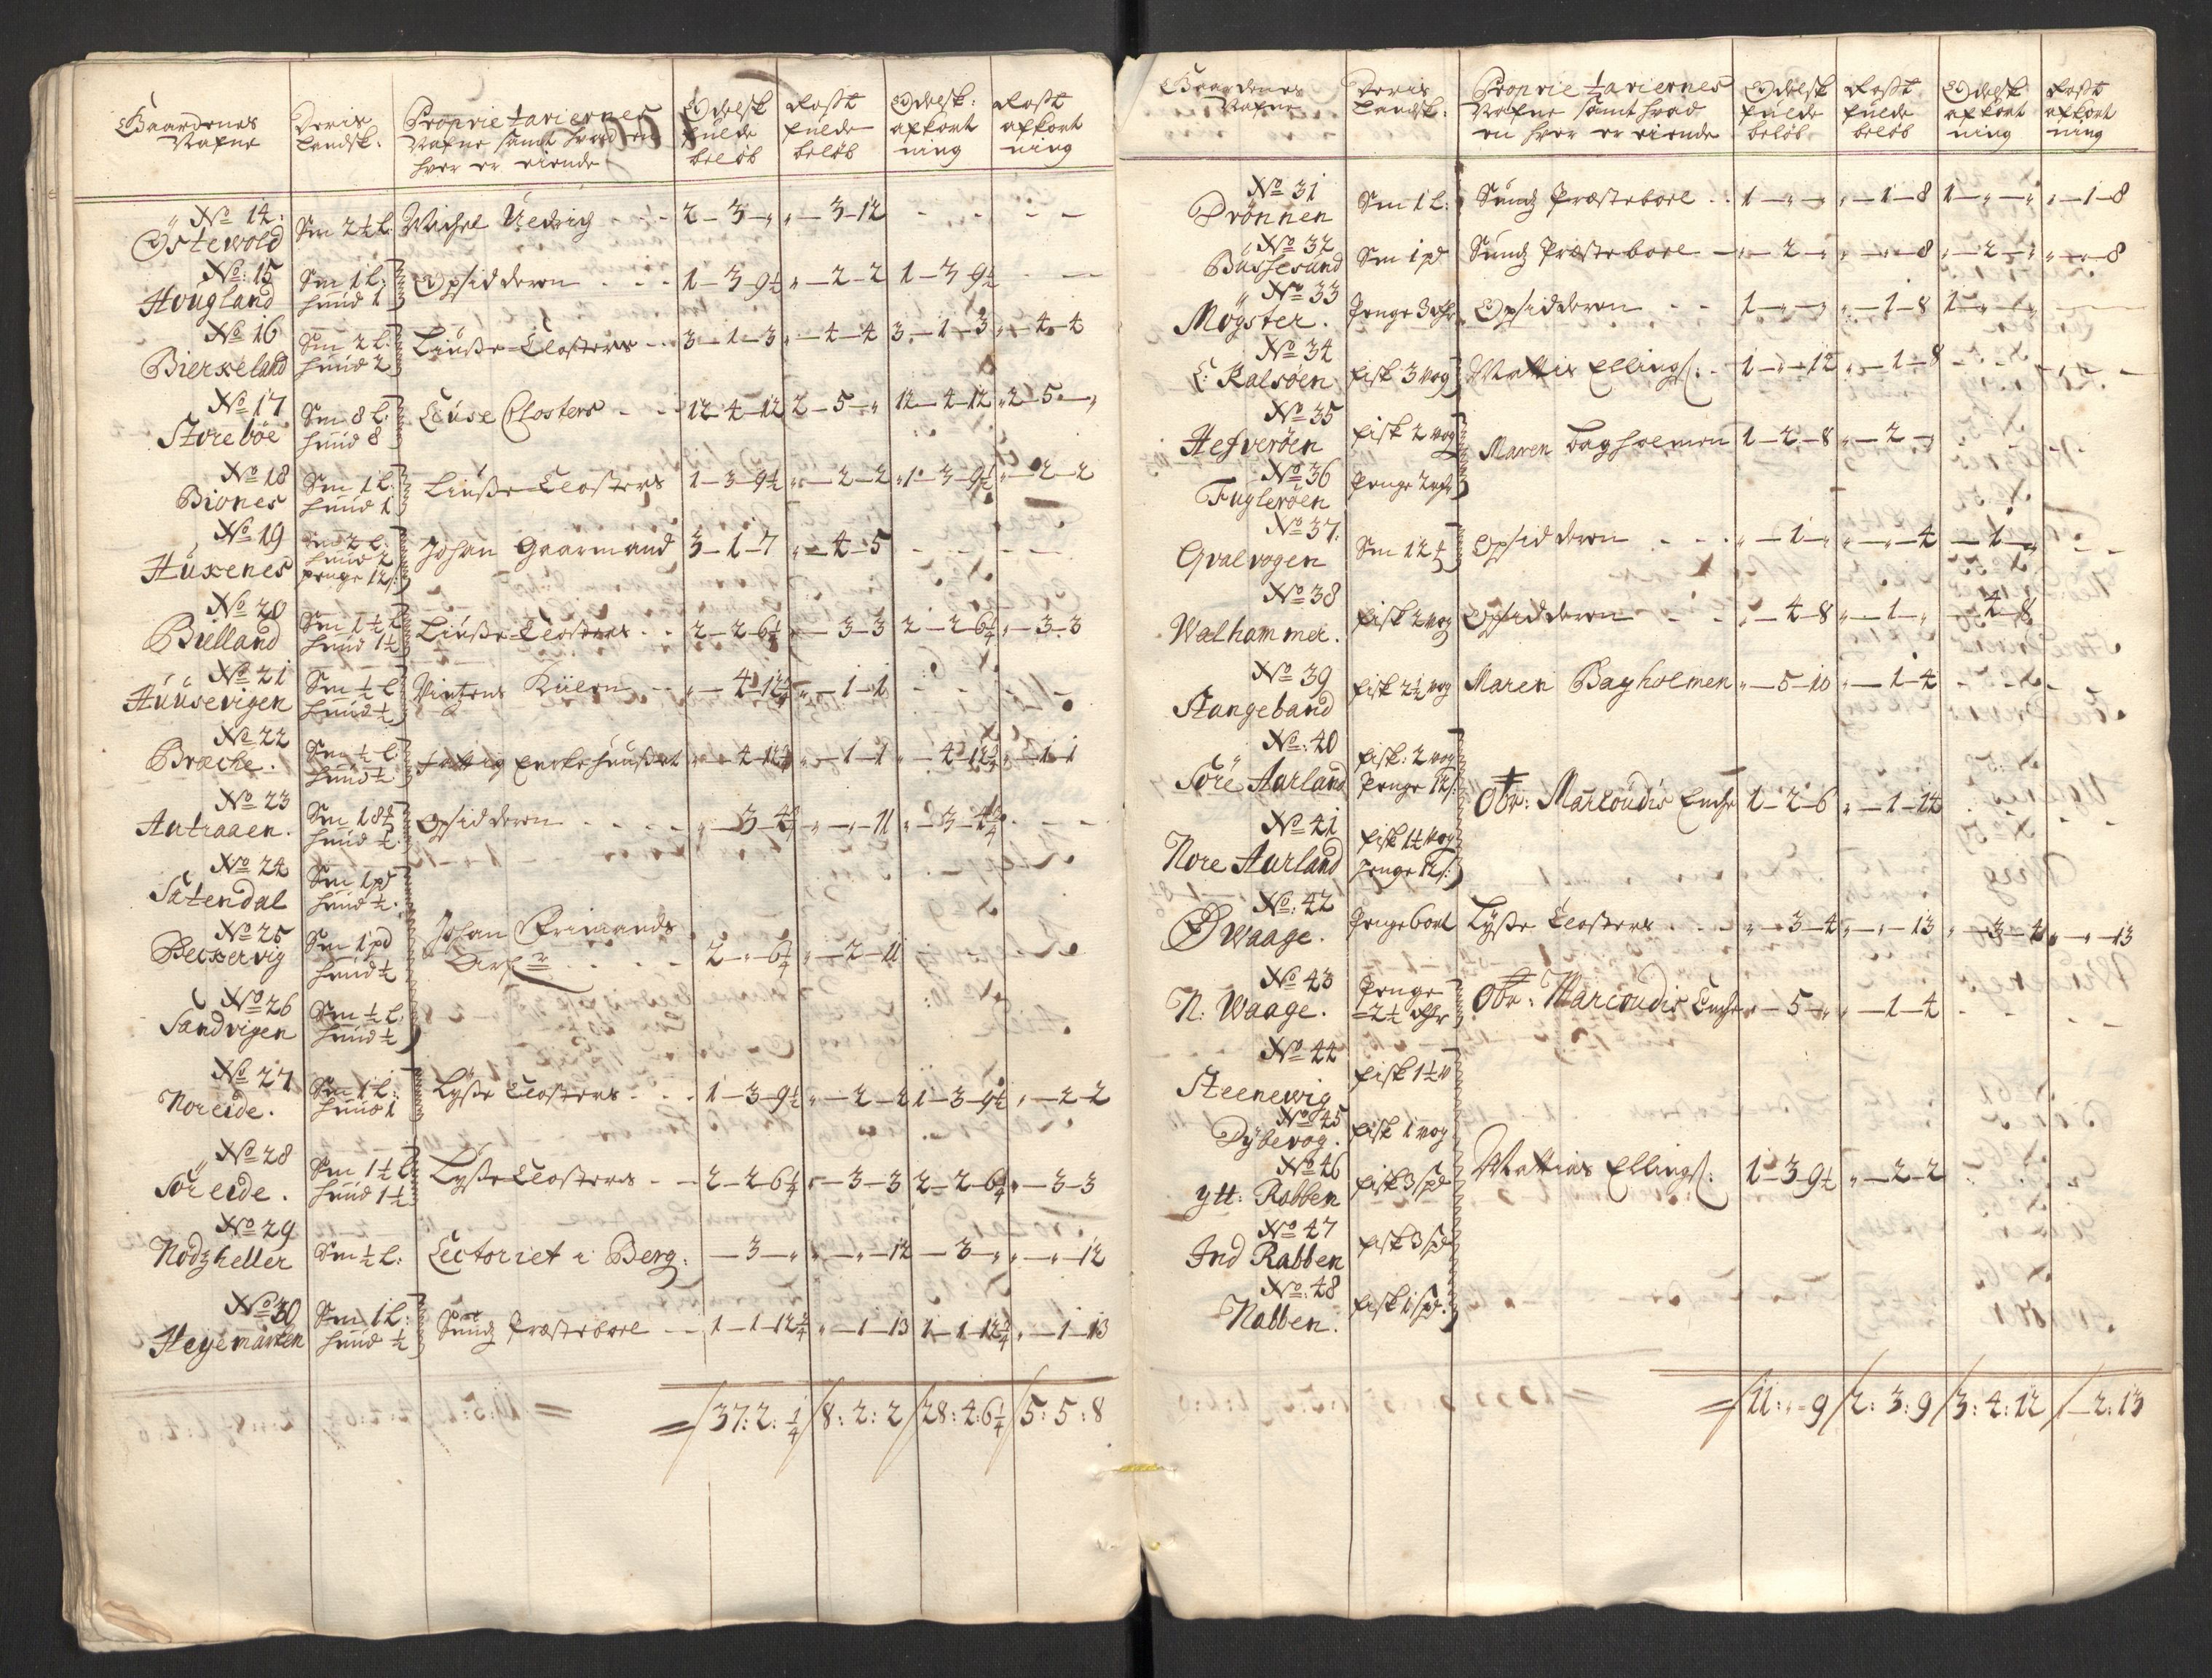 Gaardenes Nafne | Deris Landsk: | Proprietariernes Nafne samt hvad en hver er eiende | Odelsk fulde beløb | Rosst fulde beløb | Odelsk: afkortning | Rosst afkortning
No 14: Östewold | Sm 2½ l. | Michel Uedrig - - | 2-3-" | "-3-12 | - - | - -
No: 15 Hougland | Sm 1 l: huud 1 | Opsidderen - - - | 1-3-9½ | "-2-2 | 1-3-9½ | - -
No 16 Bierkeland | Sm 2 l: huud 2 | Liusse Closters - - | 3-1-3 | "-4-4 | 3-1-3 | "-4-4
No 17 Storeböe | Sm 8 l: huud 8 | Liuse Closters - - | 12-4-12 | 2-5-" | 12-4-12 | 2-5-"
No 18 Biönes | Sm 1 l: huud 1 | Liusse Closters | 1-3-9½ | "-2-2 | 1-3-9½ | "-2-2
No 19 Huxenes | Sm 2 l: huud 2 penge 12 s: | Johan Gaarmand | 3-1-7 | "-4-5 | - - | - -
No 20 Bielland | Sm 1½ l huud 1½ | Liusse Closters - - | 2-2-6¼ | "-3-3 | 2-2-6¼ | "-3-3
No 21 Huusevigen | Sm ½ l huud ½ | Vintens Küern - - | "-4-12¾ | "-1-1 | - - | -
No 22 Bræche. | Sm ½ l huud ½ | Fattig Enkehuuset | "-4-12¾ | "-1-1 | "-4-12¾ | "-1-1
No 23 Autraaen. | Sm 18 huud ½ | Opsidderen - - - - | "-3-4¾ | "-"-11 | "-3-4¾ | - - -
No 24 Satendal | Sm 1 pd huud ½.
No 25 Beckervig | Sm 1 pd huud ½ | Johan Frimands Arf - - - - | 2-"-6¼ | "-2-11
No 26 Sandvigen | Sm ½ l. huud ½
No 27 Noreide. | Sm 1 l: huud 1 | Lysse Closters - - - | 1-3-9½ | "-2-2 | 1-3-9½ | "-2-2
No 28 Söreide. | Sm 1½ l huud 1½ | Lysse Closters - - | 2-2-6¼ | "-3-3 | 2-2-6¼ | "-3-3
No 29 Nödzheller | Sm ½ l: | Lectoriet i Berg: | -3-" | "-"-12 | -3-" | "-"-12
No 30 Heyemarken | Sm 1 l: huud ½ | Sundz Præsteboel - - | 1-1-12¾ | "-1-13 | 1-1-12¾ | "-1-13
= /37:2:¼ /8:2:2 /28:4:6¼ /5:5:8
Gaardenes Nafne | Deris Landsk: | Proprietariernes Nafne samt hvad en hver er eiende | Odelsk fulde beløb | Rosst fulde beløb | Odelsk afkortning | Rosst afkortning
No 31 Drönnen | Sm 1 l: | Sundz Præsteboel - - | 1-"-" | "-1-8 | 1-"-" | "-1-8
No 32 Backesund | Sm 1 pd | Sundz Præsteboel - | "-2-" | "-"-8 | "-2-" | "-"-8
No 33 Mögster. | Penge 3 | Opsidderen - - | 1-"-" | "-1-8 | 1-"-" | - -
No 34 L: Kalsöen | Fisk 3 vog | Mattis Ellings: - | 1-"-12 | "-1-8 | - - | - - -
No 35 Hefveröen | Fisk 2 vog | Maren Bagholmen | 1-2-8 | "-2-"
No 36 Fugleröen | Penge 2
No 37. Qvalvogen | Sm 12 | Opsidderen - - - | "-1-" | "-"-4 | -1-" | - -
No 38 Walhammer. | Fisk 2 vog | Opsidderen - - | "-4-8 | "-1-" | -4-8
No 39 Stangeband | Fisk 2½ vog | Maren Bagholmen | "-5-10 | "-1-4 | - - | -
No: 40 Söre Aarland | Fisk: 2 vog Penge 12 s:
Obr: Marcoudis Enche | 1-2-6 | "-1-14 | - -
No: 41 Nore Aurland | Fisk 1½ vog Penge 12 s:
No: 42 Ö Waage. | Pengeboel | Lysse Closters - - - | "-3-4 | "-"-13 | "-3-4 | "-"-13
No 43 N: Waage. | Penge 2½ | Obr: Marcoudis Enche | "-5-" | "-1-4 | - - | - -
No 44 Steenewig | Fisk 1½ v
No: 45 Dybevog. | Fisk 1 vog
No 46 ytt: Rabben | Fisk 3 spd | Mattias Ellings: | 1-3-9½ | "-2-2
No 47 Ind Rabben | Fisk 3 spd
No: 48 Nabben. | Fisk 1 spd.
= /11:-9 /2:3:9 /3:4:12 /-2:13